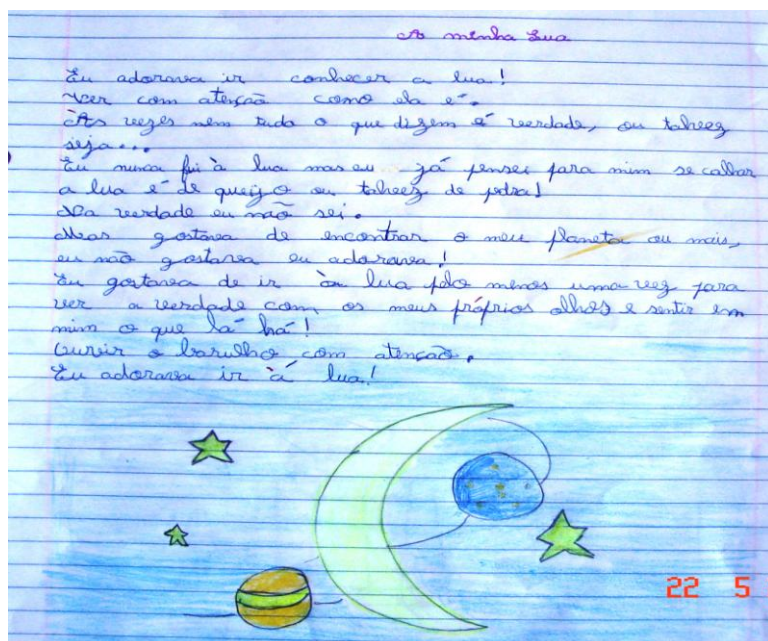 A minha Lua
Eu adorava ir conhecer a lua!
Ver com atenção como ela é.
Às vezes nem tudo o que dizem é verdade, ou talvez
seja...
Eu nunca fui à lua mas eu já pensei para mim se calhar
a lua é de queijo ou talvez de pedra!
Na verdade eu não sei.
Mas gostava de encontrar o meu planeta ou mais,
eu não gostava eu adorava!
Eu gostava de ir à lua pelo menos uma vez para
ver a verdade com os meus próprios olhos e sentir em
mim o que lá há!
Ouvir o barulho com atenção.
Eu adorava ir à lua!
22 5